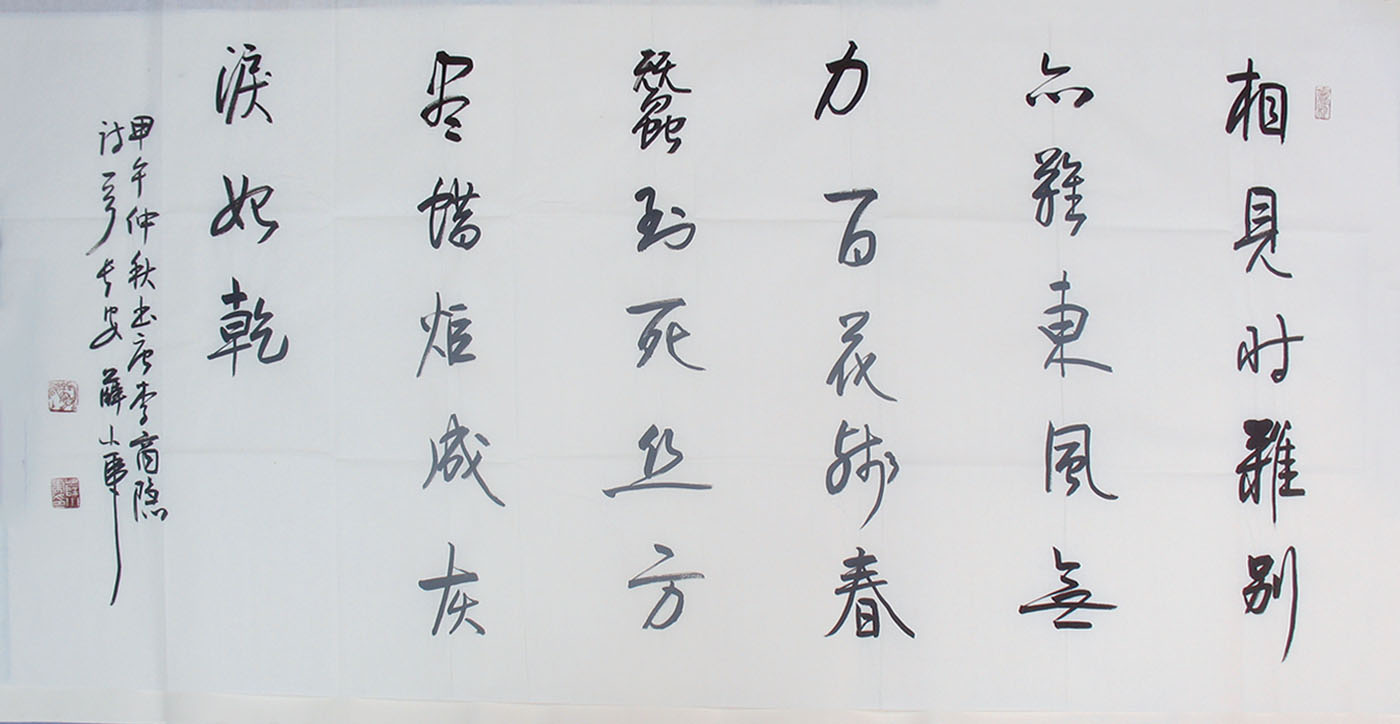 相見时難别
亦難東風無
力百花残春
蠶到死丝方
尽蜡炬成灰
淚始乾
甲午仲秋书唐李商隐
诗一首长安薛小军